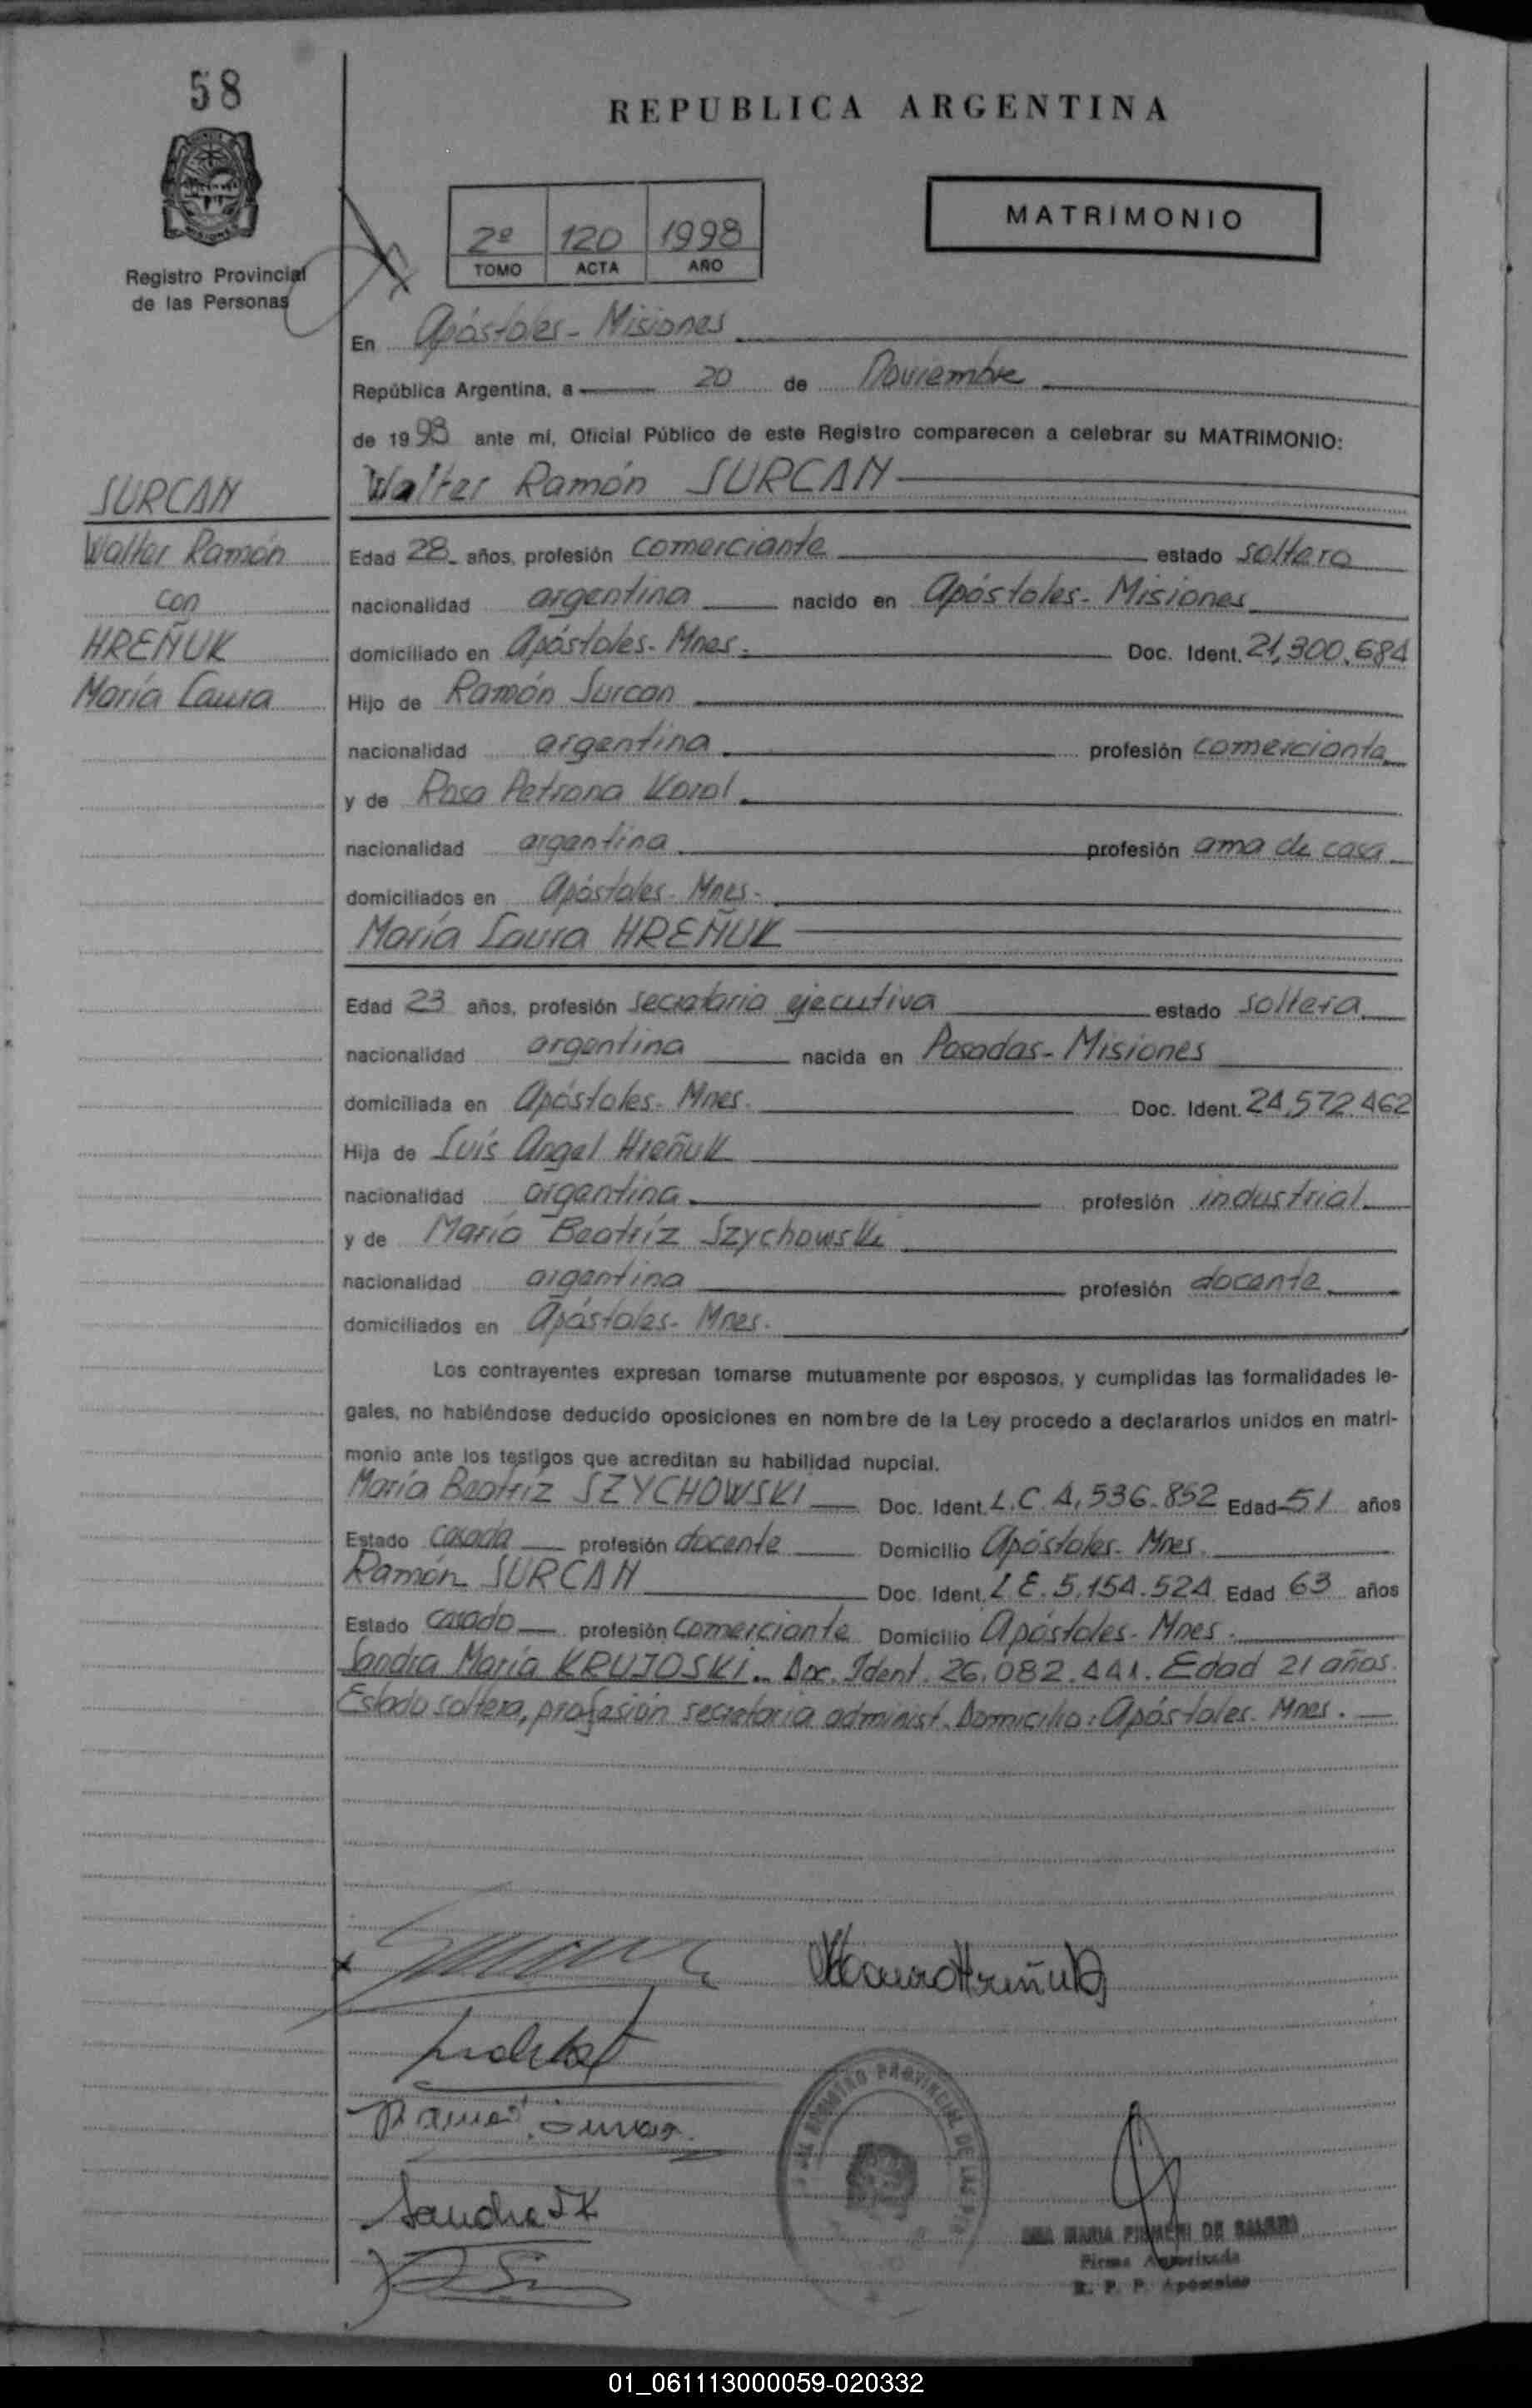 58
REPUBLICA ARGENTINA
MATRIMONIO
2º 120 1998
TOMO ACTA AÑO
Registro Provincial
de las Personas
En Apóstoles - Misiones
República Argentina, a 20 de Noviembre
de 1998 ante mí, Oficial Público de este Registro comparecen a celebrar su MATRIMONIO:
SURCAN
Walter Ramón
con
HREÑUK
María Laura
Walter Ramón SURCAN
Edad 28 años, profesión comerciante estado soltero
nacionalidad argentina nacido en Apóstoles - Misiones
domiciliado en Apóstoles - Mnes. Doc. Ident. 21.300.684
Hijo de Ramón Surcan
nacionalidad argentina profesión comerciante
y de Rosa Petrona Korol
nacionalidad argentina profesión ama de casa
domiciliados en Apóstoles - Mnes.
María Laura HREÑUK
Edad 23 años, profesión secretaria ejecutiva estado soltera
nacionalidad argentina nacida en Posadas - Misiones
domiciliada en Apóstoles - Mnes. Doc. Ident. 24.572.462
Hija de Luís Angel Hreñuk
nacionalidad argentina profesión industrial
y de María Beatríz Szychowski
nacionalidad argentina profesión docente
domiciliados en Apóstoles - Mnes.
Los contrayentes expresan tomarse mutuamente por esposos, y cumplidas las formalidades le-
gales, no habiéndose deducido oposiciones en nombre de la Ley procedo a declararlos unidos en matri-
monio ante los testigos que acreditan su habilidad nupcial.
María Beatríz SZYCHOWSKI Doc. Ident. L.C. 4.536.852 Edad 51 años
Estado casada profesión docente Domicilio Apóstoles - Mnes.
Ramón SURCAN Doc. Ident. L.E. 5.154.524 Edad 63 años
Estado casado profesión comerciante Domicilio Apóstoles - Mnes.
Sandra María KRUJOSKI.. Doc. Ident. 26.082.441. Edad 21 años.
Estado soltera, profesión secretaria administ. Domicilio: Apóstoles. Mnes.
Ramón Surcan
Sandra
REGISTRO PROVINCIAL DE LAS
MARIA DE
Firma Autorizada
R. P. P. Apóstoles
01_061113000059-020332